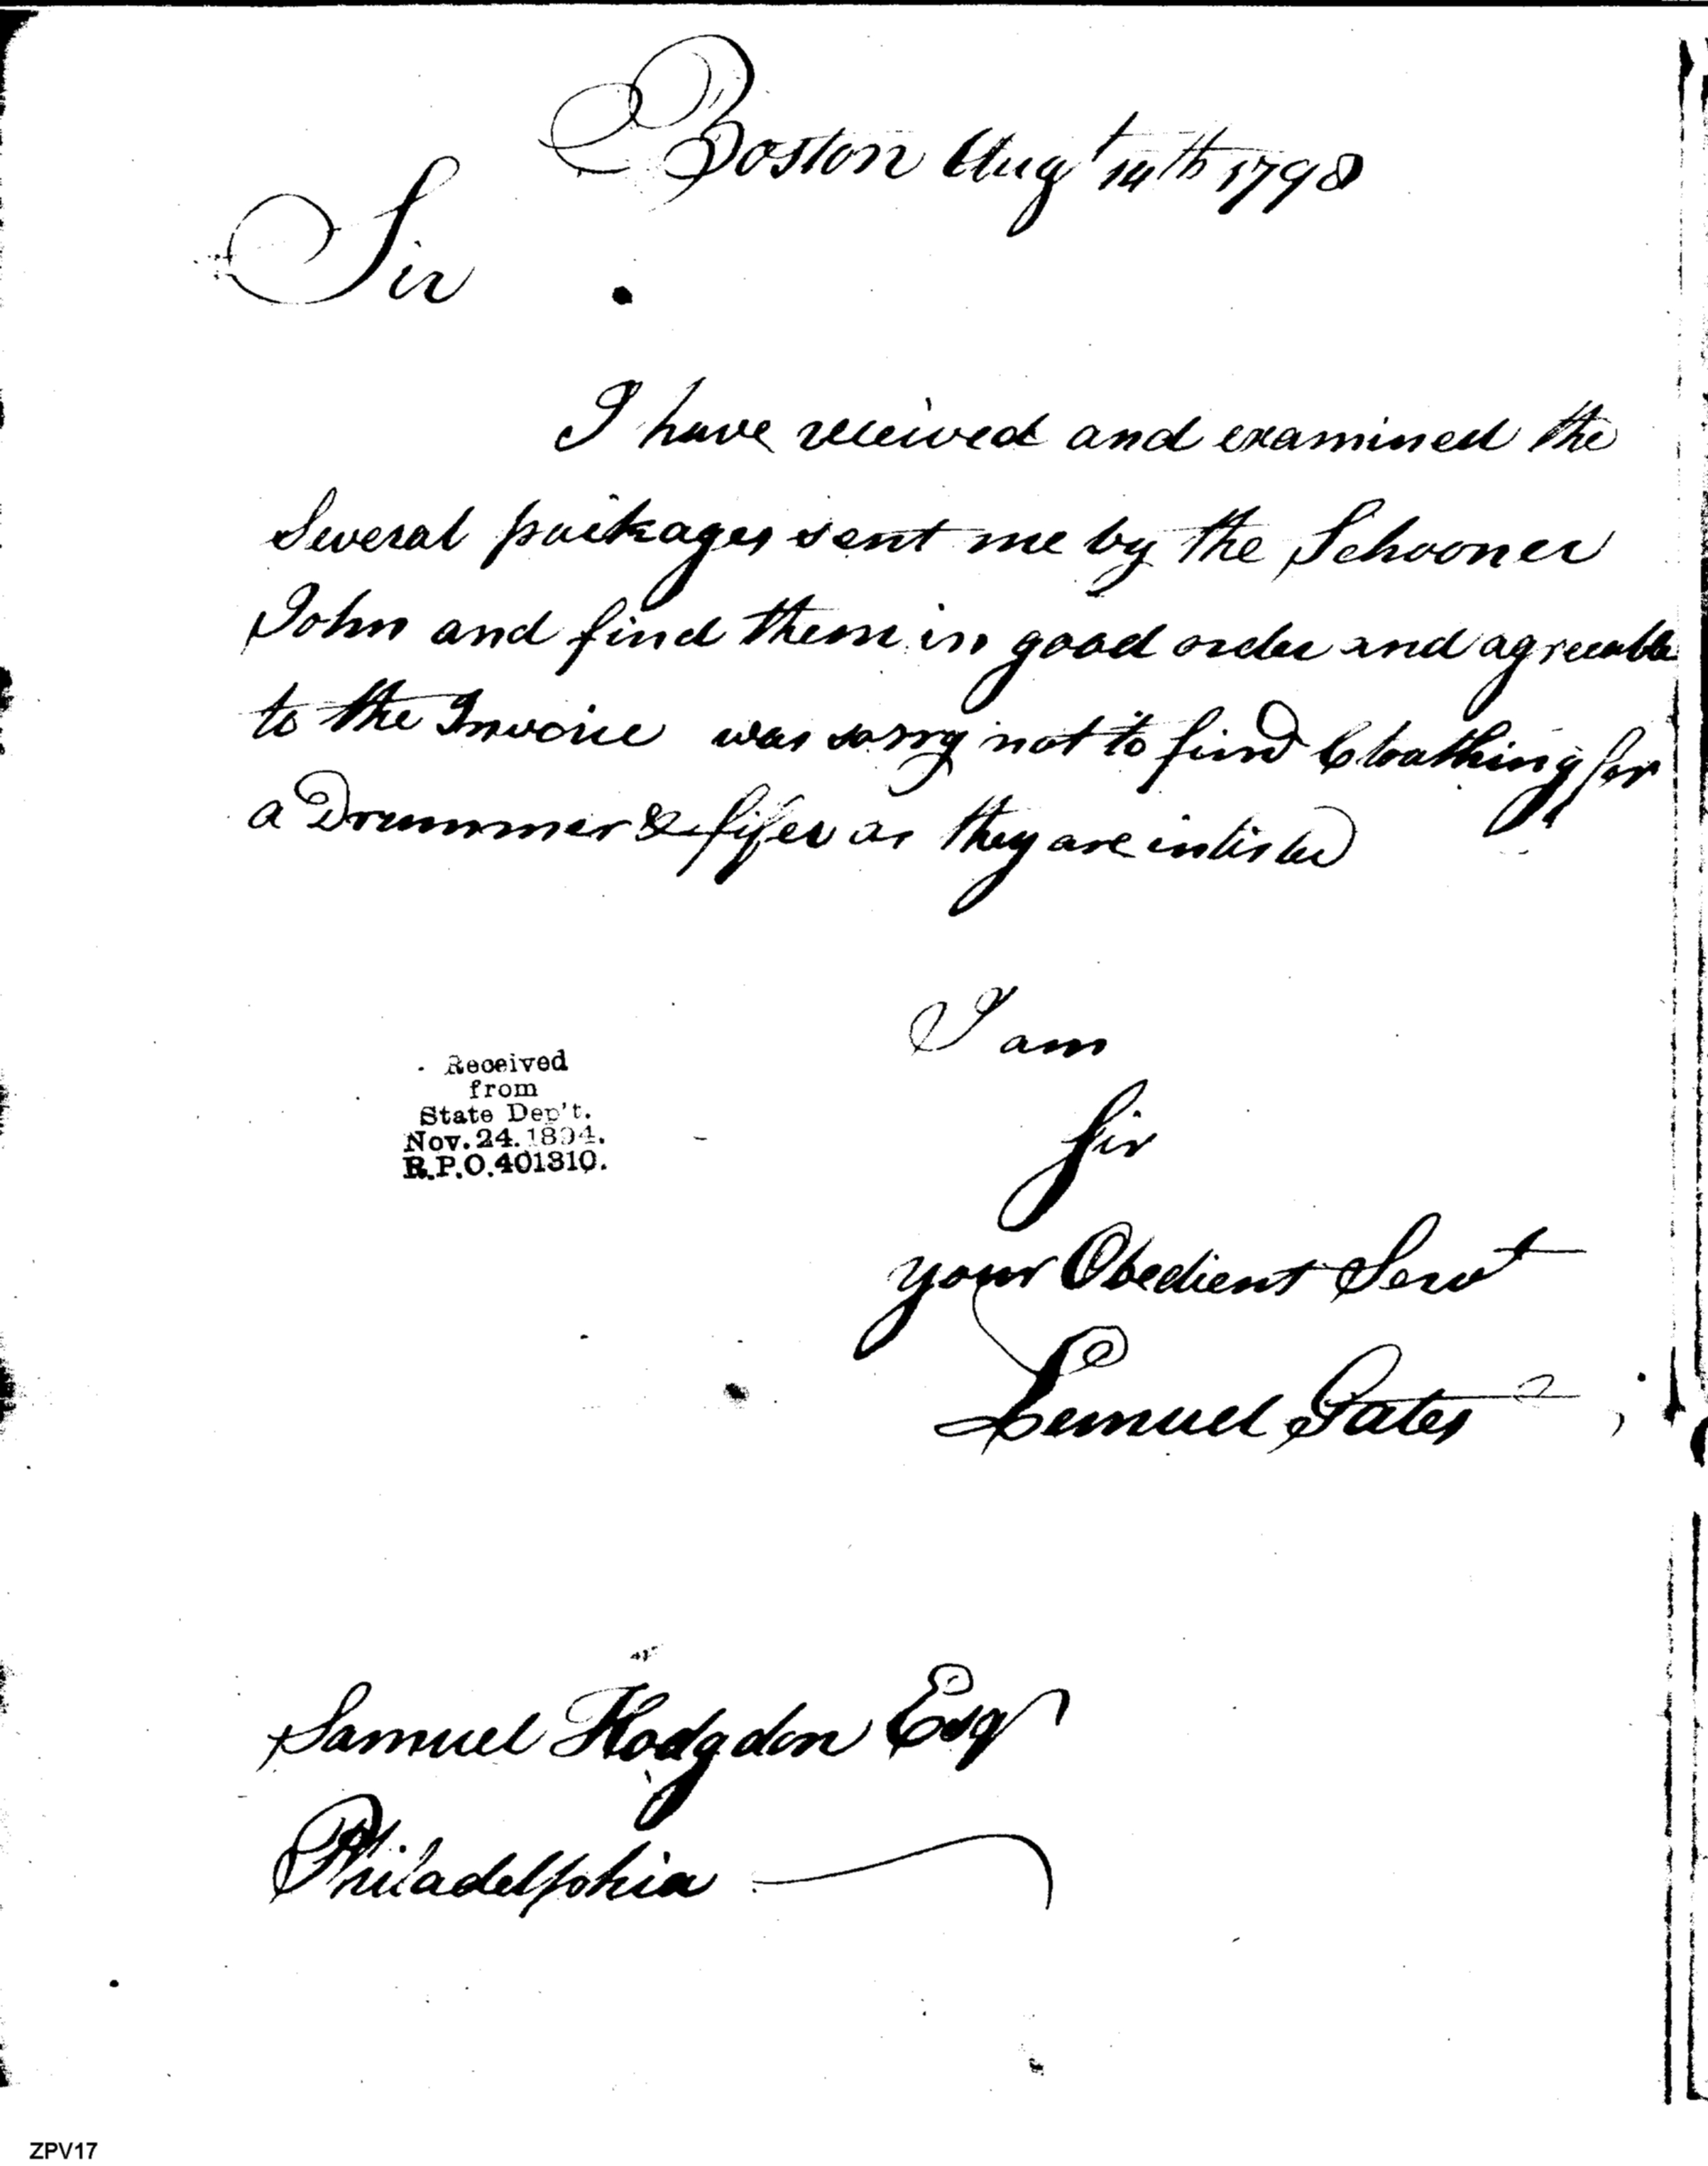 Boston Augt 14th 1798
Sir
I have received and examined the
Several packages sent me by the Schooner
John and find them in good order and agreeable
to the Invoice was sorry not to find Cloathing for
a Drummer & fifer as they are inlisted
I am
Sir
your Obedient Servt
Lemuel Gates
Received
from
State Dep't.
Nov. 24. 1894.
R.P.O. 401310.
Samuel Hodgdon Esqr
Philadelphia
ZPV17